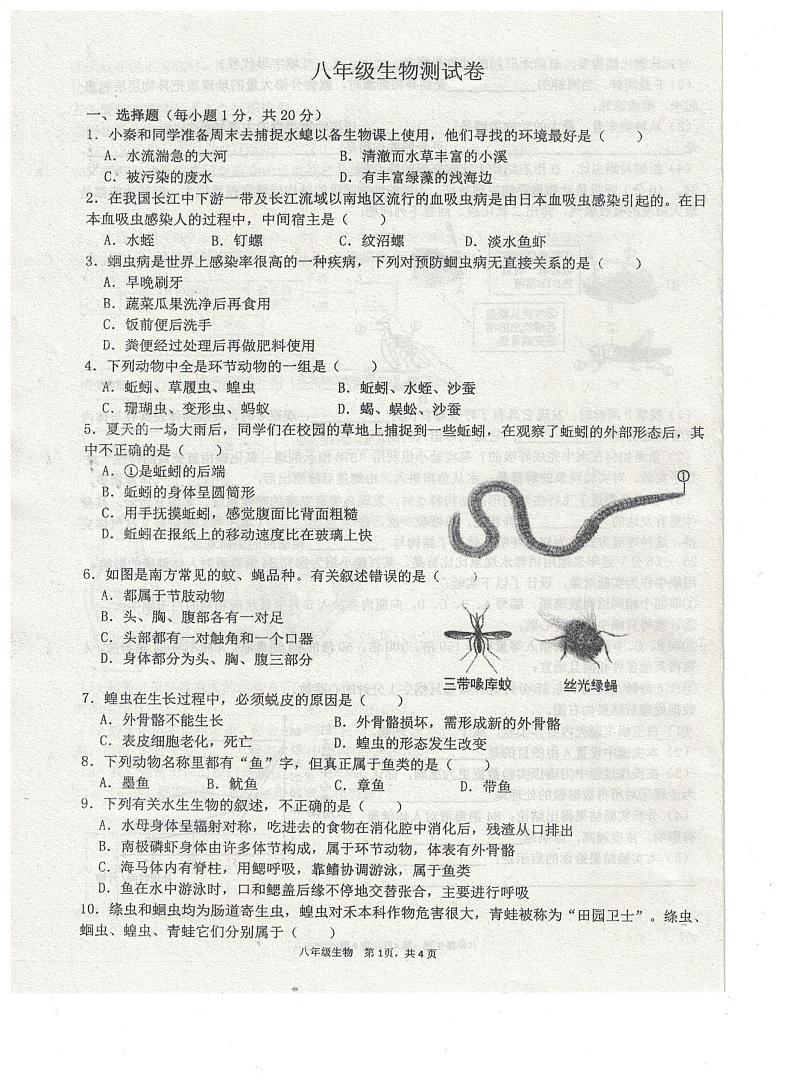 八年级生物测试卷
一、选择题（每小题1分，共20分）
1．小秦和同学准备周末去捕捉水螅以备生物课上使用，他们寻找的环境最好是（　　）
A．水流湍急的大河　　B．清澈而水草丰富的小溪
C．被污染的废水　　D．有丰富绿藻的浅海边
2．在我国长江中下游一带及长江流域以南地区流行的血吸虫病是由日本血吸虫感染引起的。在日
本血吸虫感染人的过程中，中间宿主是（　　）
A．水蛭　　B．钉螺　　C．纹沼螺　　D．淡水鱼虾
3．蛔虫病是世界上感染率很高的一种疾病，下列对预防蛔虫病无直接关系的是（　　）
A．早晚刷牙
B．蔬菜瓜果洗净后再食用
C．饭前便后洗手
D．粪便经过处理后再做肥料使用
4．下列动物中全是环节动物的一组是（　　）
A．蚯蚓、草履虫、蝗虫　　B．蚯蚓、水蛭、沙蚕
C．珊瑚虫、变形虫、蚂蚁　　D．蝎、蜈蚣、沙蚕
5．夏天的一场大雨后，同学们在校园的草地上捕捉到一些蚯蚓，在观察了蚯蚓的外部形态后，其
中不正确的是（　　）
A．①是蚯蚓的后端
B．蚯蚓的身体呈圆筒形
C．用手抚摸蚯蚓，感觉腹面比背面粗糙
D．蚯蚓在报纸上的移动速度比在玻璃上快
①
6．如图是南方常见的蚊、蝇品种。有关叙述错误的是（　　）
A．都属于节肢动物
B．头、胸、腹部各有一对足
C．头部都有一对触角和一个口器
D．身体都分为头、胸、腹三部分
三带喙库蚊　　丝光绿蝇
7．蝗虫在生长过程中，必须蜕皮的原因是（　　）
A．外骨骼不能生长　　B．外骨骼损坏，需形成新的外骨骼
C．表皮细胞老化，死亡　　D．蝗虫的形态发生改变
8．下列动物名称里都有“鱼”字，但真正属于鱼类的是（　　）
A．墨鱼　　B．鱿鱼　　C．章鱼　　D．带鱼
9．下列有关水生生物的叙述，不正确的是（　　）
A．水母身体呈辐射对称，吃进去的食物在消化腔中消化后，残渣从口排出
B．南极磷虾身体由许多体节构成，属于环节动物，体表有外骨骼
C．海马体内有脊柱，用鳃呼吸，靠鳍协调游泳，属于鱼类
D．鱼在水中游泳时，口和鳃盖后缘不停地交替张合，主要进行呼吸
10．绦虫和蛔虫均为肠道寄生虫，蝗虫对禾本科作物危害很大，青蛙被称为“田园卫士”。绦虫、
蛔虫、蝗虫、青蛙它们分别属于（　　）
八年级生物　第1页，共4页